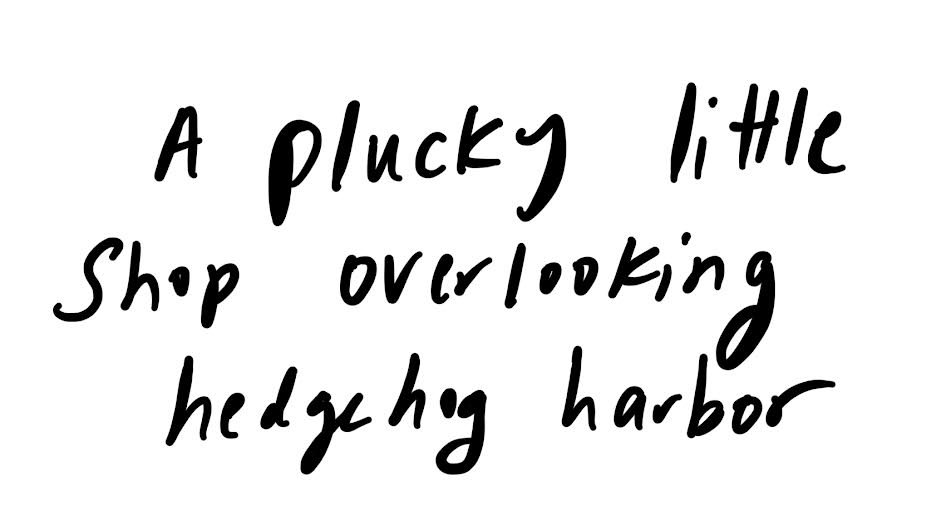 A plucky little
Shop overlooking
hedgehog harbor